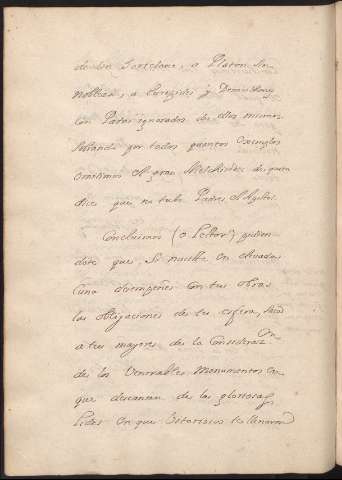 de un Sortelano, a Platon sin
nobleza, a Euripides y Demosthenes
con Padres ignorados de ellos mismos
sobrando por todos quantos exemplos
omitimos el gran Melchisedec de quien
dice que no tubo Padres el Apostol.
Concluimos (o Lector) pidien-
dote que, si naciste en elevada
cuna desempeñes con tus obras
las obligaciones de tu esfera, sin
a tus mayores de la Considerazon
de los Venerables Monumentos en
que descansan de las gloriosas
lides en que Victoriosos te llenaron